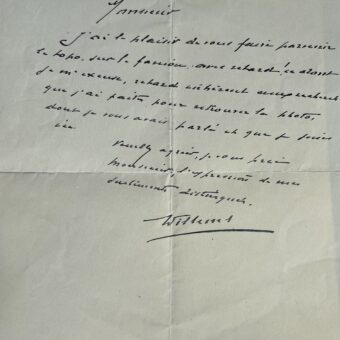 Monsieur
J'ai le plaisir de vous faire parvenir
le topo sur le fanion, avec retard, ce dont
je m'excuse, retard inhérent aux recherches
que j'ai faites pour retrouver la photo,
dont je vous avais parlé et que je joins
ici
Veuillez agréer, je vous prie
Monsieur, l'expression de mes
sentiments distingués.